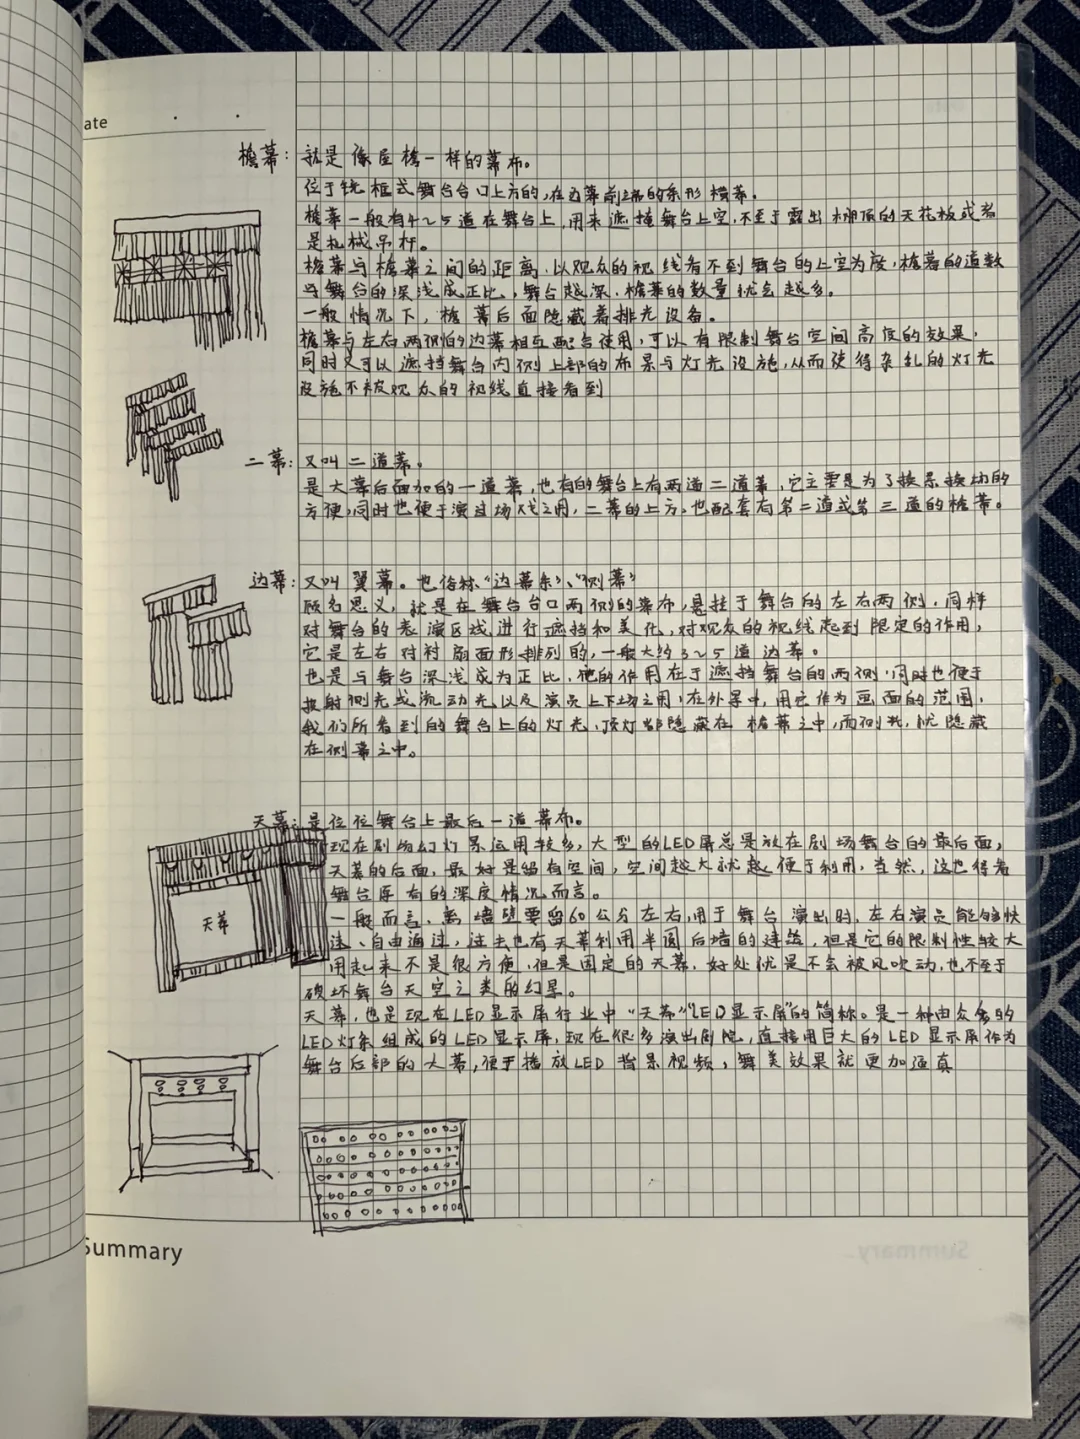 ate
檐幕：就是像屋檐一样的幕布。
位于镜框式舞台台口上方的，在边幕前端的条形横幕。
檐幕一般有4~5道在舞台上，用来遮掩舞台上空，不至于露出棚顶的天花板或者
是机械吊杆。
檐幕与檐幕之间的距离，以观众的视线看不到舞台的上空为度，檐幕的道数
与舞台的深浅成正比，舞台越深，檐幕的数量就会越多。
一般情况下，檐幕后面隐藏着排光设备。
檐幕与左右两侧的边幕相互配合使用，可以有限制舞台空间高度的效果，
同时又可以遮挡舞台内侧上部的布景与灯光设施，从而使得杂乱的灯光
设施不被观众的视线直接看到
二幕：又叫二道幕。
是大幕后面加的一道幕，也有的舞台上有两道二道幕，它主要是为了换景换场的
方便，同时也便于演过场戏之用，二幕的上方，也配套有第二道或第三道的檐幕。
边幕：又叫翼幕。也俗称“边幕条”、“侧幕”
顾名思义，就是在舞台台口两侧的幕布，悬挂于舞台的左右两侧，同样
对舞台的表演区域进行遮挡和美化，对观众的视线起到限定的作用，
它是左右对衬扇面形排列的，一般大约3~5道边幕。
也是与舞台深浅成为正比，他的作用在于遮挡舞台的两侧，同时也便于
投射侧光或流动光以及演员上下场之用，在外景中，用它作为画面的范围，
我们所看到的舞台上的灯光，顶灯都隐藏在檐幕之中，而侧光，就隐藏
在侧幕之中。
天幕：是位位舞台上最后一道幕布。
现在剧场幻灯景运用较多，大型的LED屏总是放在剧场舞台的最后面，
天幕的后面，最好是留有空间，空间越大就越便于利用，当然，这也得看
舞台原有的深度情况而言。
一般而言，离墙壁要留60公分左右，用于舞台演出时，左右演员能够快
速、自由通过，过去也有天幕利用半圆后墙的建筑，但是它的限制性较大
用起来不是很方便，但是固定的天幕，好处就是不会被风吹动，也不至于
破坏舞台天空之类的幻景。
天幕，也是现在LED显示屏行业中“天幕”“LED显示屏”的简称。是一种由众多的
LED灯条组成的LED显示屏，现在很多演出剧院，直接用巨大的LED显示屏作为
舞台后部的大幕，便于播放LED背景视频，舞美效果就更加逼真
天幕
Summary